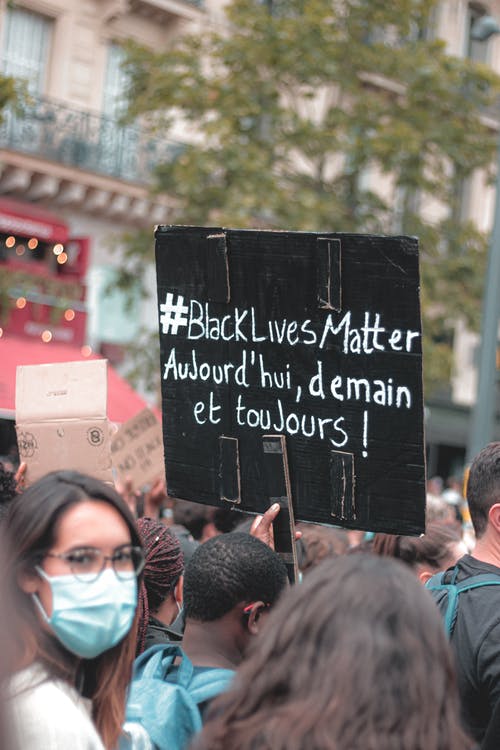 #BlackLivesMatter
Aujourd'hui, demain
et toujours !